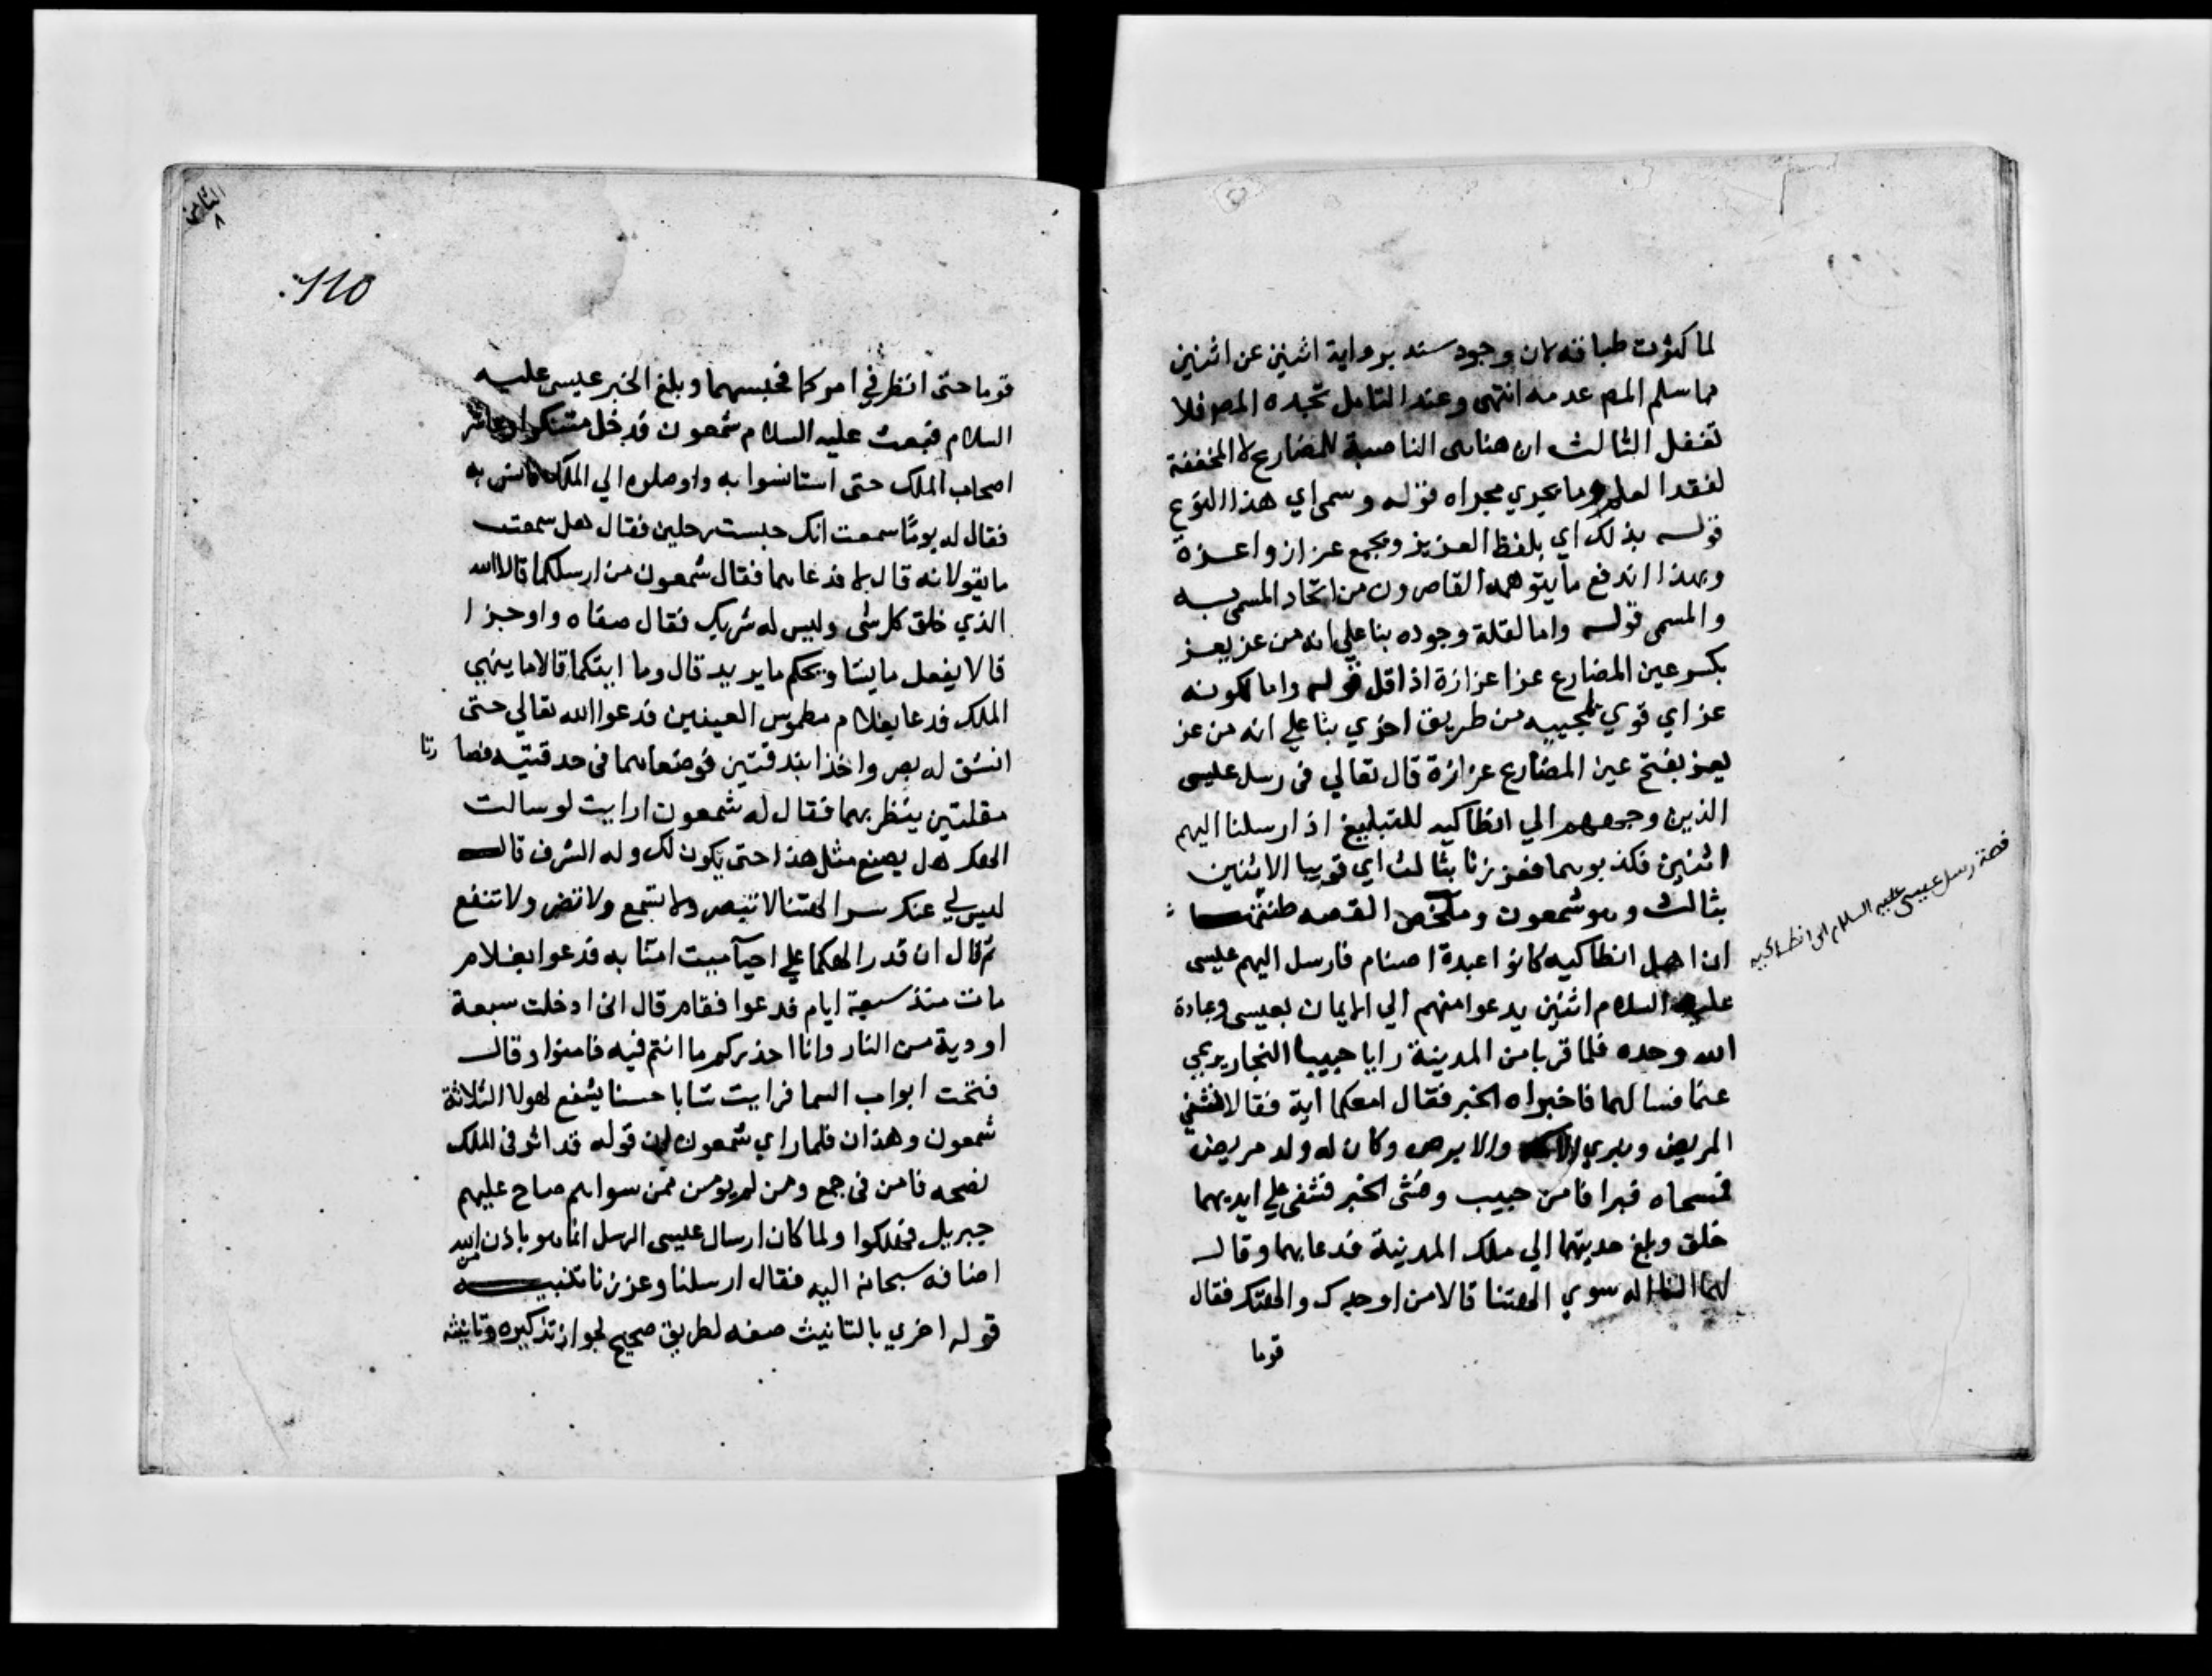 لما كثرت طباقه لان وجود سند برواية اثنين عن اثنين
مما سلم المص عدمه انتهى وعند التامل تجده المص فلا
تغفل الثالث ان هنا هى الناصبة للمضارع لا المخففة
لفقد العلم وما يجري مجراه قوله وسمى اي هذا النوع
قوله بذلك اي بلفظ العزيز ويجمع عزاز واعزة
وبهذا اندفع ما يتوهمه القاصرون من اتحاد المسمى به
والمسمى قوله واما لقلة وجوده بنا علي انه من عز يعز
بكسر عين المضارع عزا عزازة اذا قل قوله واما لكونه
عز اي قوي بمجيبه من طريق اخري بنا علي انه من عز
يعز بفتح عين المضارع عزازة قال تعالي في رسل عيسى
الذين وجههم الي انطاكيه للتبليغ اذ ارسلنا اليهم
اثنين فكذبوهما فعززنا بثالث اي قوينا الاثنين
بثالث وهو شمعون وملخص القصه
ان اهل انطاكيه كانوا عبدة اصنام فارسل اليهم عيسى
عليه السلام اثنين يدعوا منهم الي الايمان بعيسى وعبادة
الله وحده فلما قربا من المدينة رايا حبيبا النجار يرعي
غنما فسالهما فاخبراه الخبر فقال امعكما آية فقالا نشفي
المريض ونبري الاكمه والابرص وكان له ولد مريض
فمسحاه فبرا فامن حبيب وفشى الخبر فشفى علي ايديهما
خلق وبلغ حديثهما الي ملك المدينة فدعا بهما وقال
لهما النا اله سوي الهتنا قالا من اوجدك والهتك فقال
قوما
قصة رسل عيسى عليه السلام الى انطاكيه
الثامن
٨
110
قوما حتى انظر في امركما فحبسهما وبلغ الخبر عيسى عليه
السلام فبعث عليه السلام شمعون فدخل متنكرا وعاشر
اصحاب الملك حتى استانسوا به واوصلوه الي الملك فانس به
فقال له يوما سمعت انك حبست رجلين فقال هل سمعت
ما يقولانه قال لا فدعاهما فقال شمعون من ارسلكما قالا الله
الذي خلق كل شى وليس له شريك فقال صفاه واوجزا
قالا يفعل ما يشا ويحكم ما يريد قال وما ايتكما قالا ما ينهي
الملك فدعا بغلام مطموس العينين فدعوا الله تعالي حتى
انشق له بصر واخذا بندقتين فوضعاهما فى حدقتيه فصا رتا
مقلتين ينظر بهما فقال له شمعون ارايت لو سالت
الهك هل يصنع مثل هذا حتى يكون لك وله الشرف قال
ليس لي عنك سر الهتنا لا تبصر ولا تسمع ولا تضر ولا تنفع
ثم قال ان قدر الهكما علي احيآ ميت امنا به فدعوا بغلام
مات منذ سبعة ايام فدعوا فقام قال انى ادخلت سبعة
اودية من النار وانا احذركم ما انتم فيه فامنوا وقال
فتحت ابواب السما فرايت شابا حسنا يشفع لهولا الثلاثة
شمعون وهذان فلما راي شمعون ان قوله قد اثر فى الملك
نصحه فامن فى جمع ومن لم يومن ممن سواهم صاح عليهم
جبريل فهلكوا ولما كان ارسال عيسى الرسل انما هو باذن من الله
اضافه سبحانه اليه فقال ارسلنا وعززنا تنبيه
قوله اخري بالتانيث صفه لطريق صحيح لجواز تذكيره وتانيثه